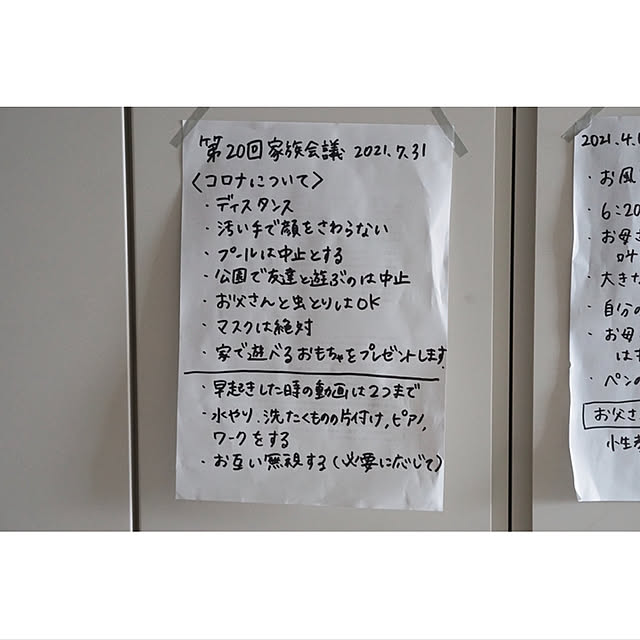 第20回家族会議 2021.7.31
〈コロナについて〉
・ディスタンス
・汚い手で顔をさわらない
・プールは中止とする
・公園で友達と遊ぶのは中止
・お父さんと虫とりはOK
・マスクは絶対
・家で遊べるおもちゃをプレゼントします
・早起きした時の動画は2つまで
・水やり.洗たくものの片付け,ピアノ,
ワークをする
・お互い無視する(必要に応じて)
2021.4.
・お風
・6:20
・お母さ
叫
・大きな
・自分の
・お母
は
・ペンの
お父さ